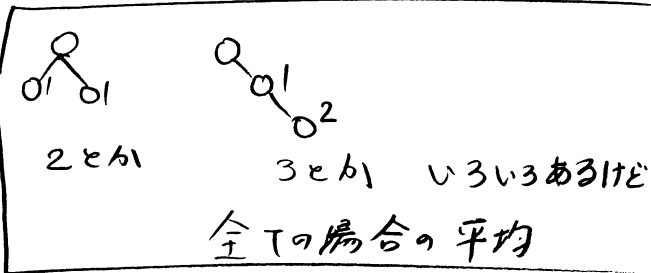 1 1 1 2
2とか 3とか いろいろあるけど
全ての場合の平均